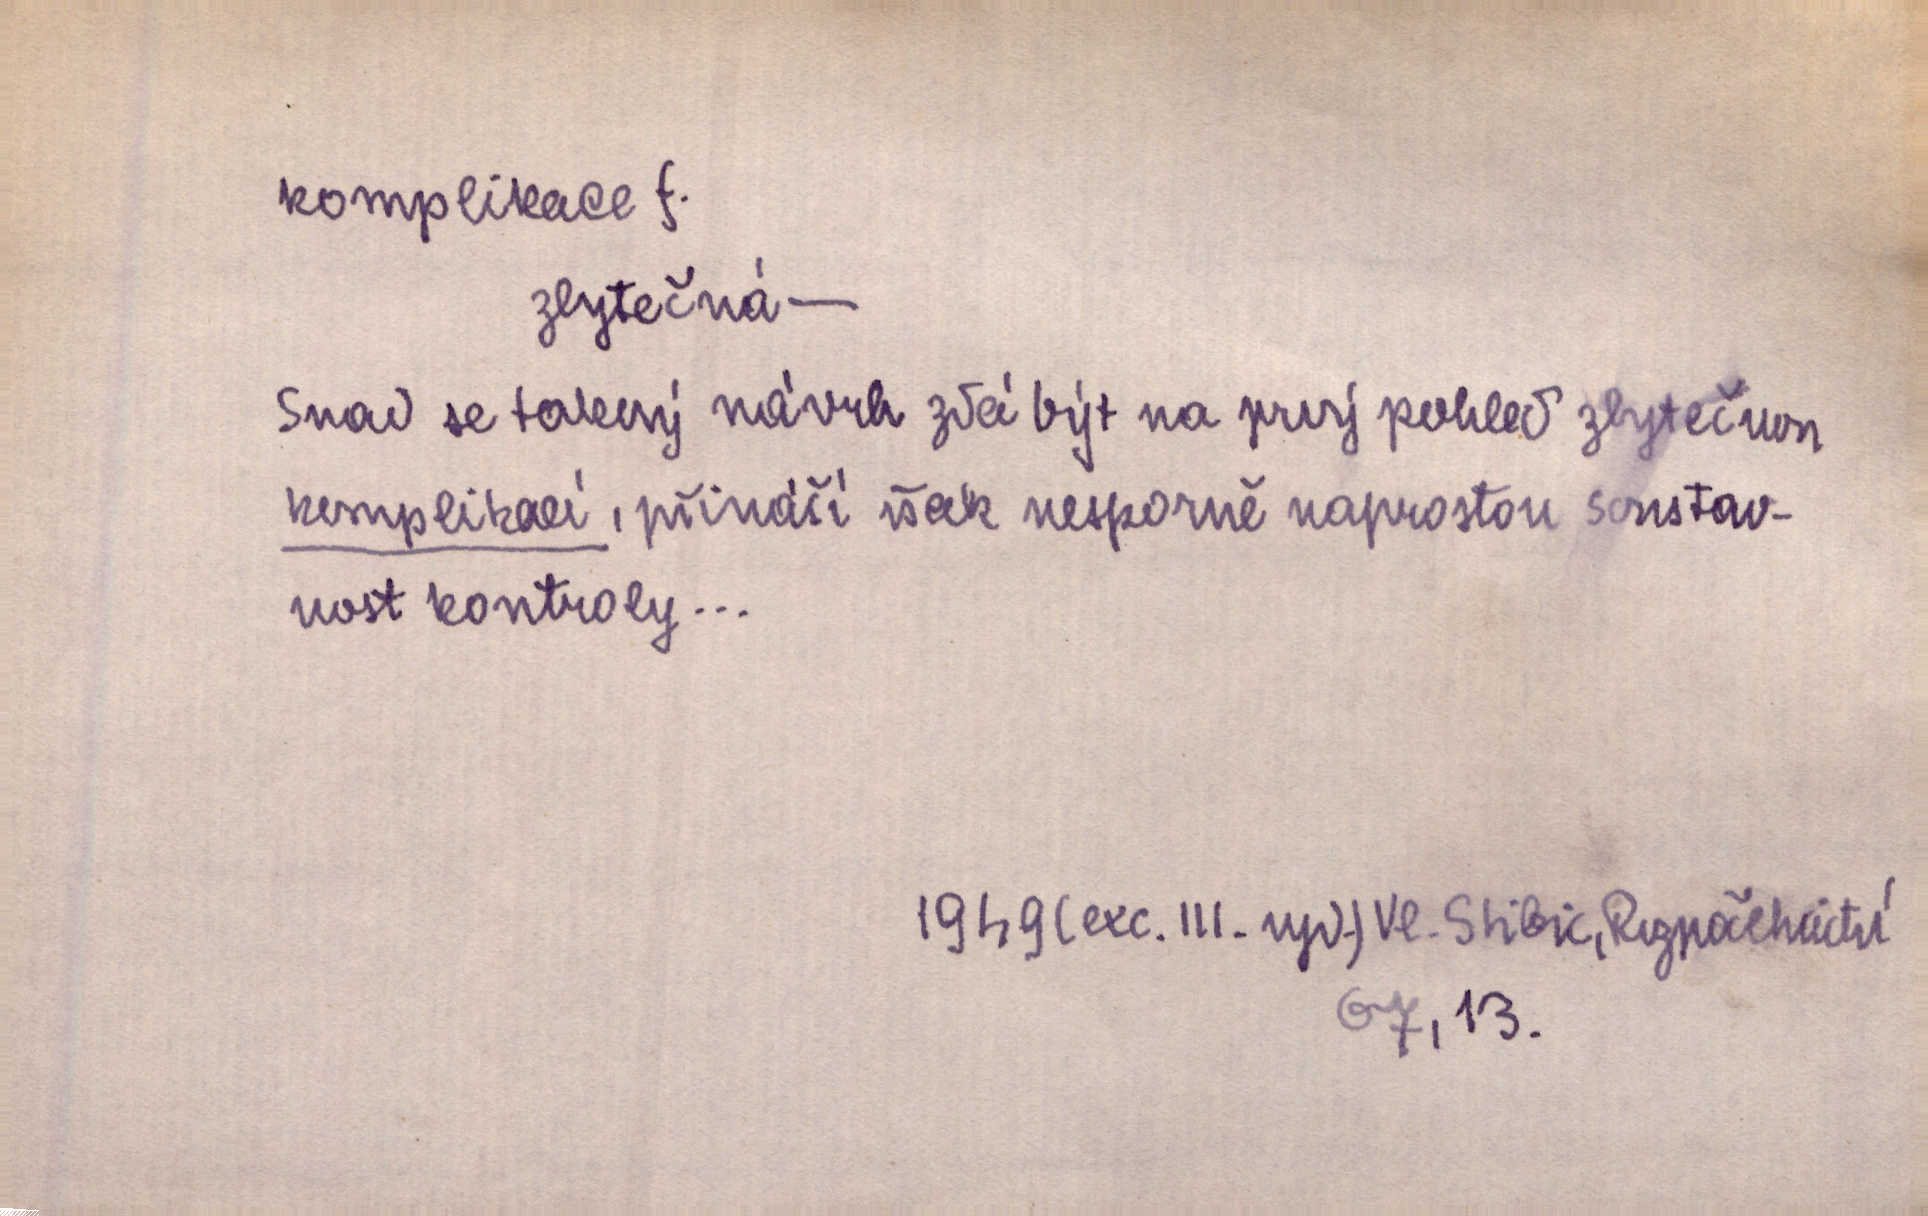 komplikace f.
zbytečná —
Snad se takový návrh zdá být na prvý pohled zbytečnou
komplikací, přináší však nesporně naprostou soustav-
nost kontroly...
1949 (exc. III. vyd.) Vl. Stibic, Rozpočetnictví
67, 13.